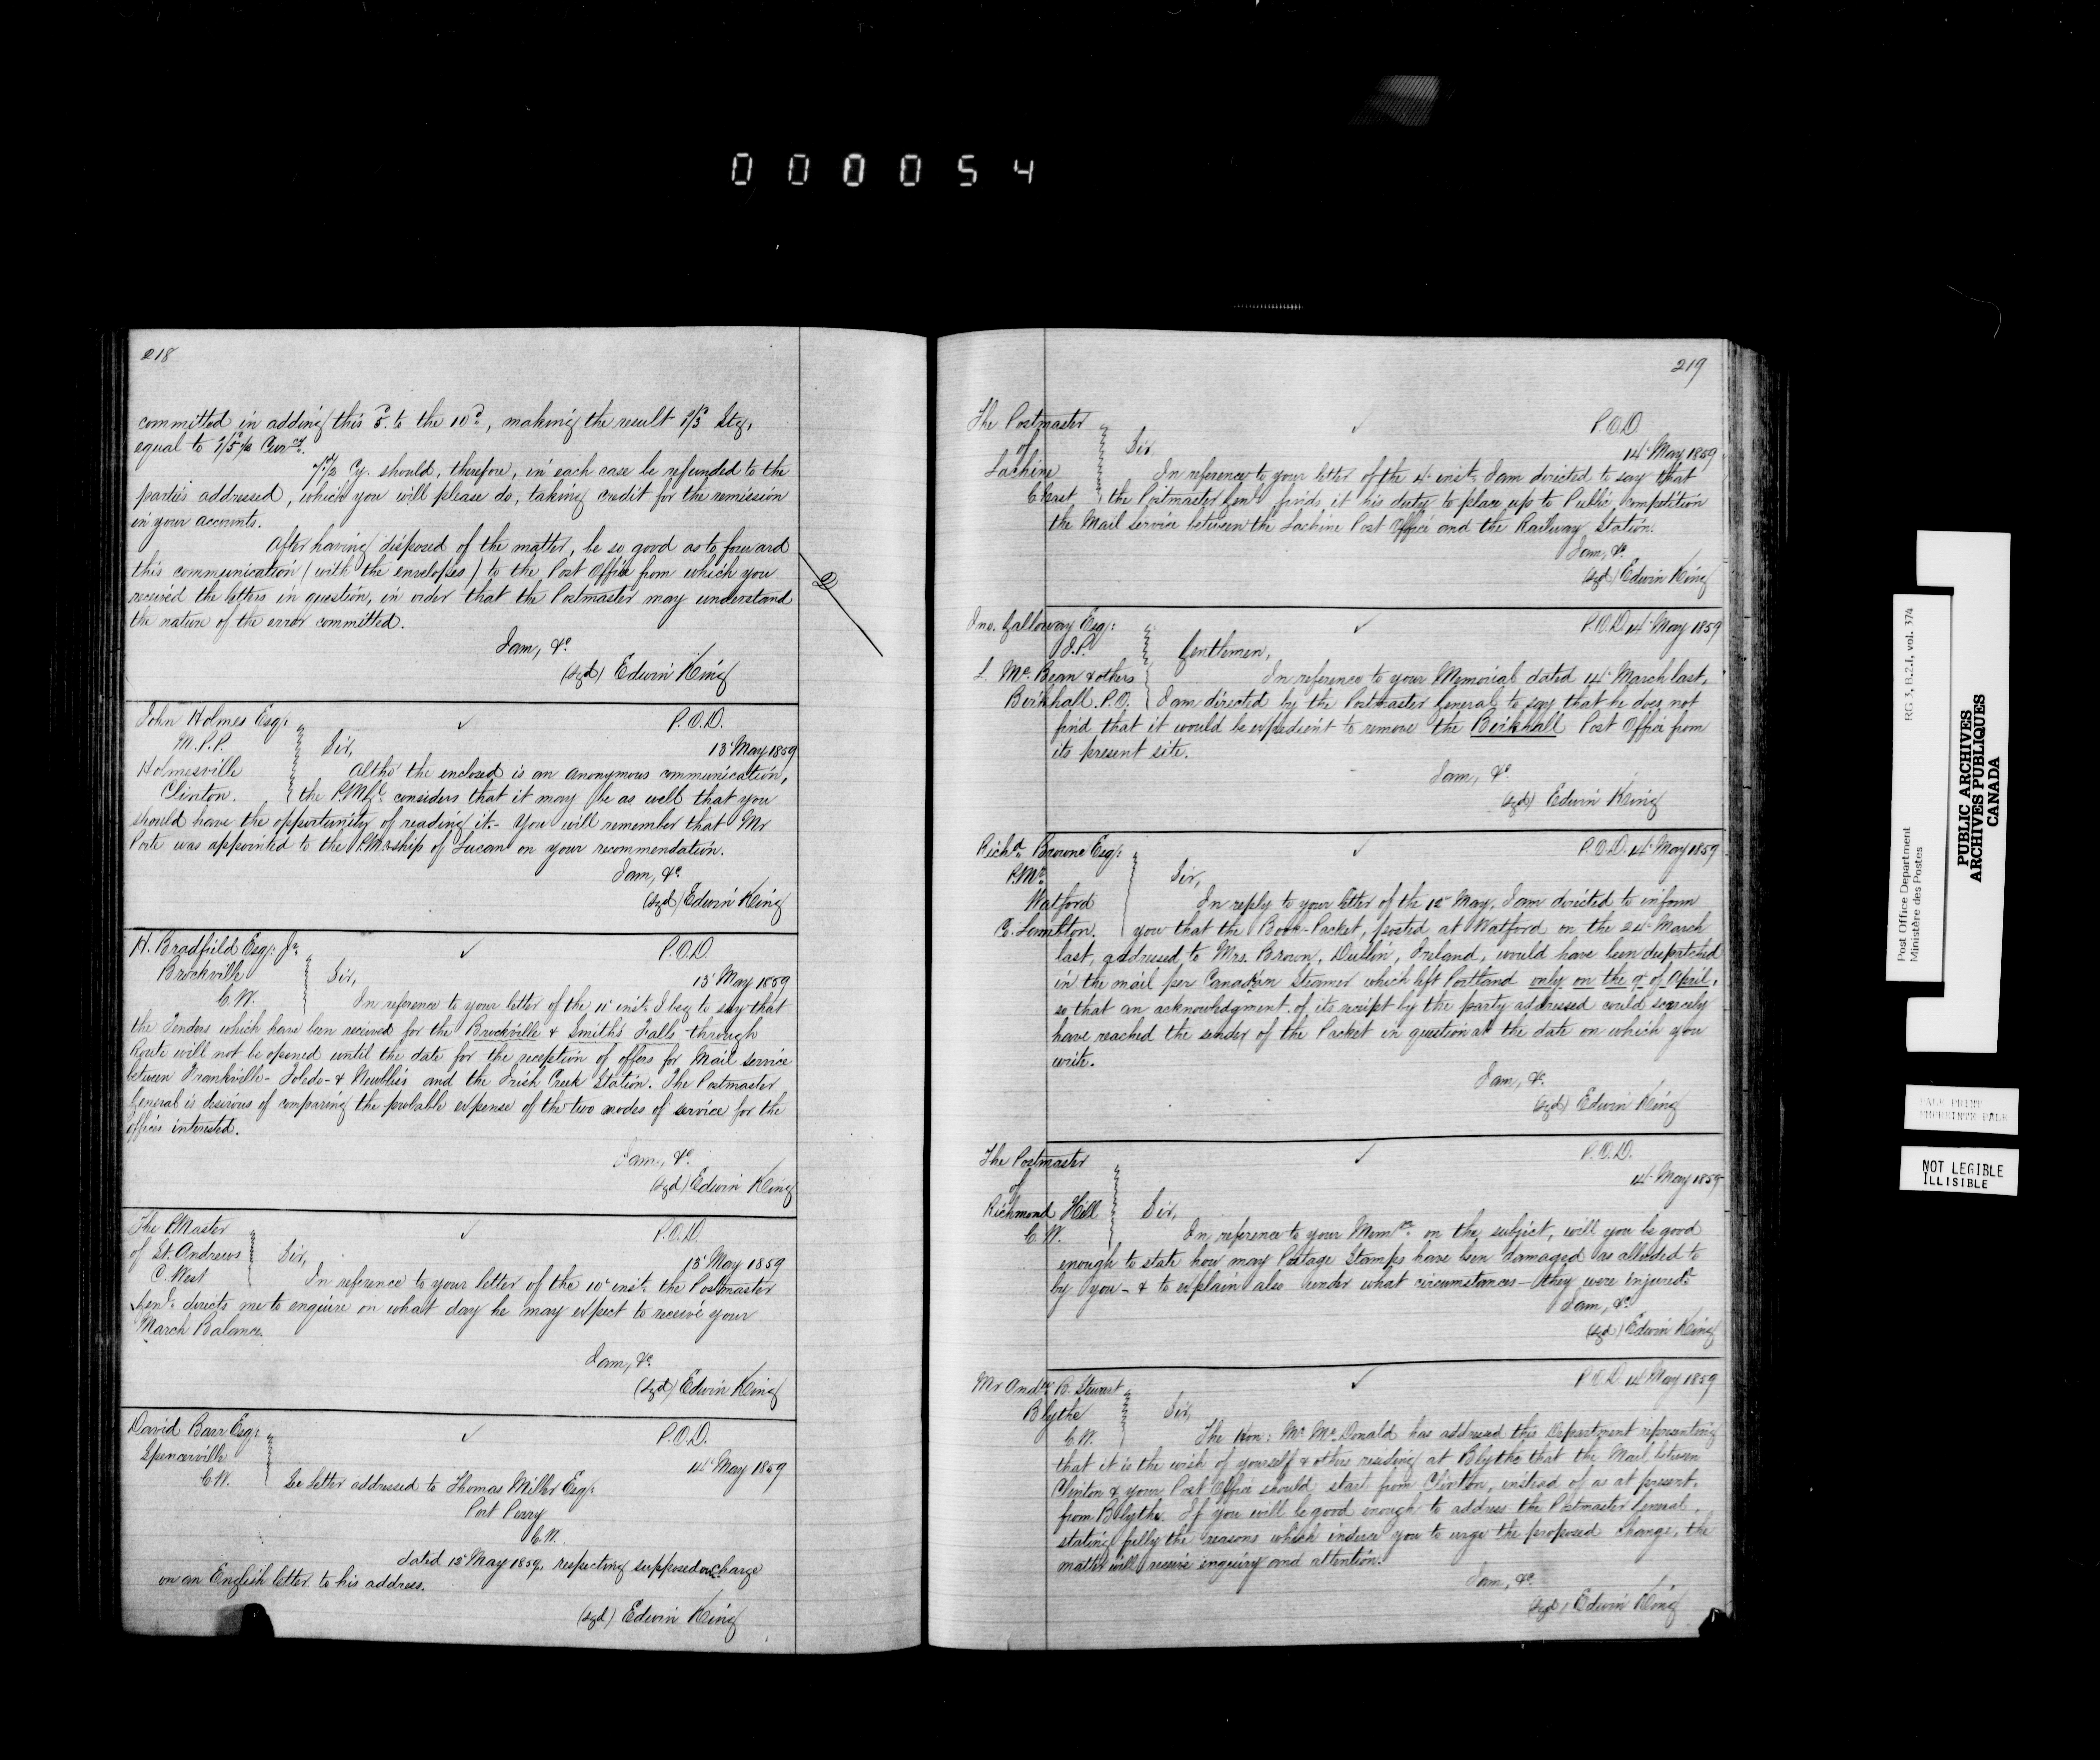 000054
218
committed in adding this 5d. to the 10d, making the result 1/3 Stg,
equal to 1/5½ Curcy.
7½ Cy. should, therefore, in each case be refunded to the
parties addressed, which you will please do, taking credit for the remission
in your accounts.
After having disposed of the matter, be so good as to forward
this communication (with the envelopes) to the Post Office from which you
received the letters in question, in order that the Postmaster may understand
the nature of the error committed.
I am, &c
(sgd) Edwin King
John Holmes Esq:
M.P.P.
Holmesville
Clinton.
P.O.D.
13 May 1859
Sir,
Altho' the enclosed is an anonymous communication,
the P.M.Gl. considers that it may be as well that you
should have the opportunity of reading it.- You will remember that Mr
Porte was appointed to the P.M.ship of Lucan on your recommendation.
I am, &c
(sgd) Edwin King
H. Bradfield Esq: Jr.
Brockville
C.W.
P.O.D.
13 May 1859
Sir,
In reference to your letter of the 11 inst. I beg to say that
the Tenders which have been received for the Brockville & Smith's Falls through
Route will not be opened until the date for the reception of offers for Mail service
between Frankville- Toledo- & Newbliss and the Irish Creek Station. The Postmaster
General is desirous of comparing the probable expense of the two modes of service for the
Offices interested.
I am, &c
(sgd) Edwin King
The P.Master
of St. Andrews
C. West
P.O.D.
13 May 1859
Sir,
In reference to your letter of the 10 inst. the Postmaster
Genl. directs me to enquire on what day he may expect to receive your
March Balance.
I am, &c
(sgd) Edwin King
David Barr Esq:
Spencerville
C.W.
P.O.D.
14 May 1859
See letter addressed to Thomas Miller Esq:
Port Perry
C.W.
dated 12 May 1859, respecting supposed overcharge
on an English letter to his address.
(sgd) Edwin King
219
The Postmaster
of
Lachine
C. East
P.O.D.
14 May 1859
Sir
In reference to your letter of the 4 inst. I am directed to say that
the Postmaster Genl. finds it his duty to place up to Public competition
the Mail service between the Lachine Post Office and the Railway Station.
I am, &c
(sgd) Edwin King
Jno. Galloway Esq:
J.P.
L. Mc.Bean & others
Birkhall. P.O.
P.O.D. 14 May 1859
Gentlemen,
In reference to your Memorial dated 14 March last,
I am directed by the Postmaster General to say that he does not
find that it would be expedient to remove the Birkhall Post Office from
its present site.
I am, &c
(sgd) Edwin King
Richd. Browne Esq:
P.Mr.
Watford
C. Lambton.
P.O.D. 14 May 1859
Sir,
In reply to your letter of the 12 May, I am directed to inform
you that the Book-Packet, posted at Watford on the 24 March
last, addressed to Mrs. Brown, Dublin, Ireland, would have been despatched
in the mail per Canadian Steamer which left Portland only on the 9 of April,
so that an acknowledgment of its receipt by the party addressed could scarcely
have reached the sender of the Packet in question at the date on which you
write.
I am, &c
(sgd) Edwin King
The Postmaster
of
Richmond Hill
C.W.
P.O.D.
14 May 1859
Sir,
In reference to your Memo. on the subject, will you be good
enough to state how may Postage Stamps have been damaged as alluded to
by you- & to explain also under what circumstances- they were injured.
I am, &c
(sgd) Edwin King
Mr Andw. R. Stewart
Blythe
C.W.
P.O.D. 14 May 1859
Sir,
The Hon: Mr. McDonald has addressed this Department representing
that it is the wish of yourself & others residing at Blythe that the Mail between
Clinton & your Post Office should start from Clinton, instead of as at present,
from Blythe. If you will be good enough to address the Postmaster General,
stating fully the reasons which induce you to urge the proposed change, the
matter will receive enquiry and attention.
I am, &c
(sgd) Edwin King
Post Office Department
Ministère des Postes
RG 3, B.2.I, vol. 374
PUBLIC ARCHIVES
ARCHIVES PUBLIQUES
CANADA
PALE PRINT
NOT LEGIBLE
ILLISIBLE